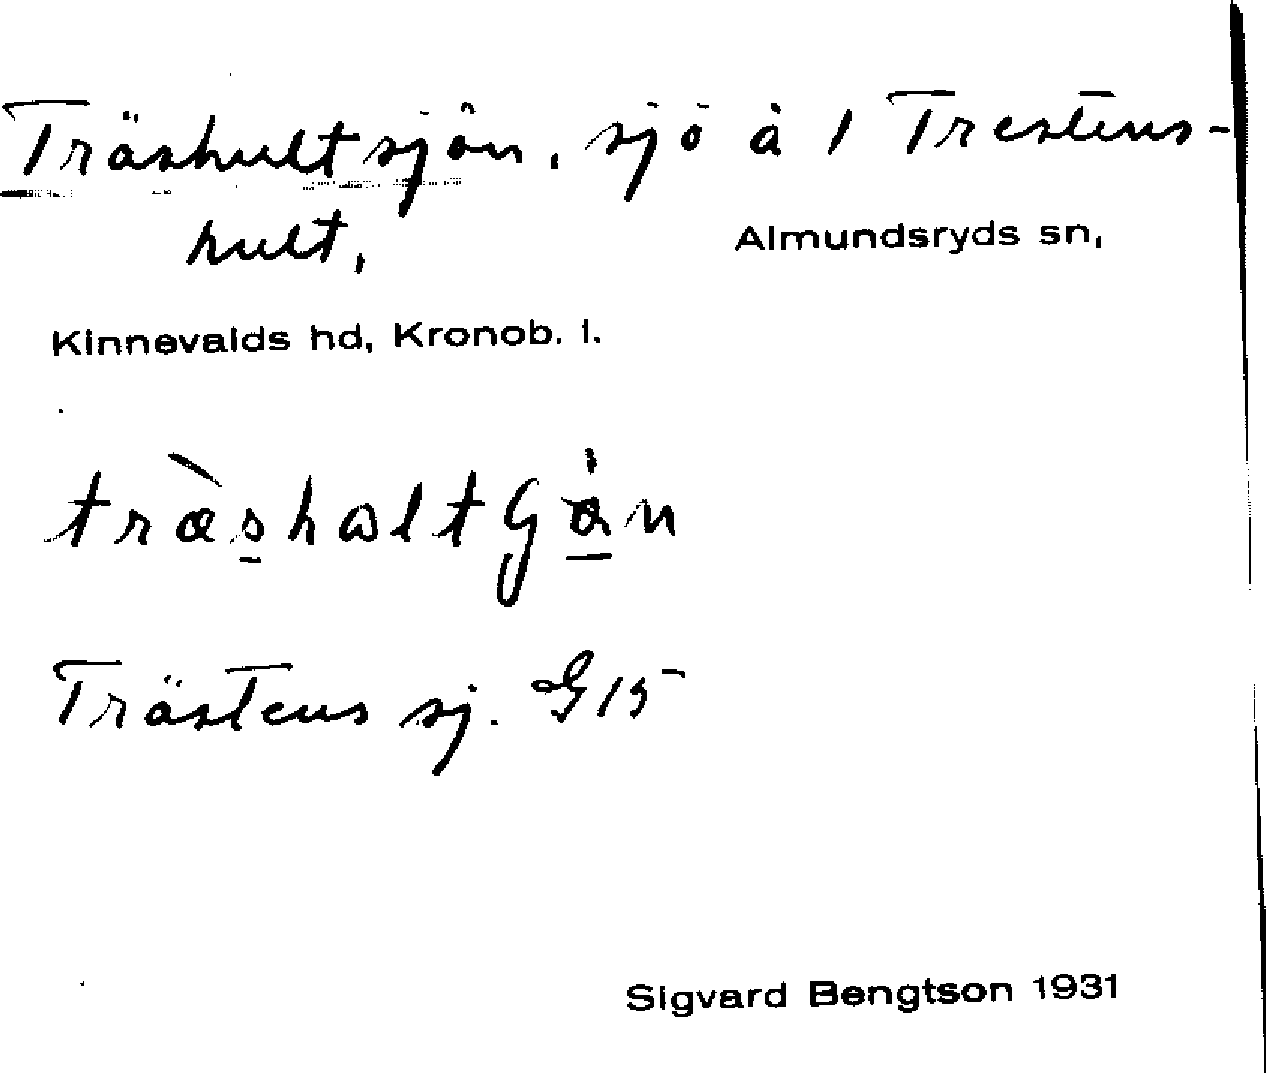 Träshultsjön, sjö å 1 Trestens-
hult,
Almundsryds sn,
Kinnevalds hd, Kronob. l.
træ̀shɷltʃɑ̇n
Trästens sj. G15
Sigvard Bengtson 1931